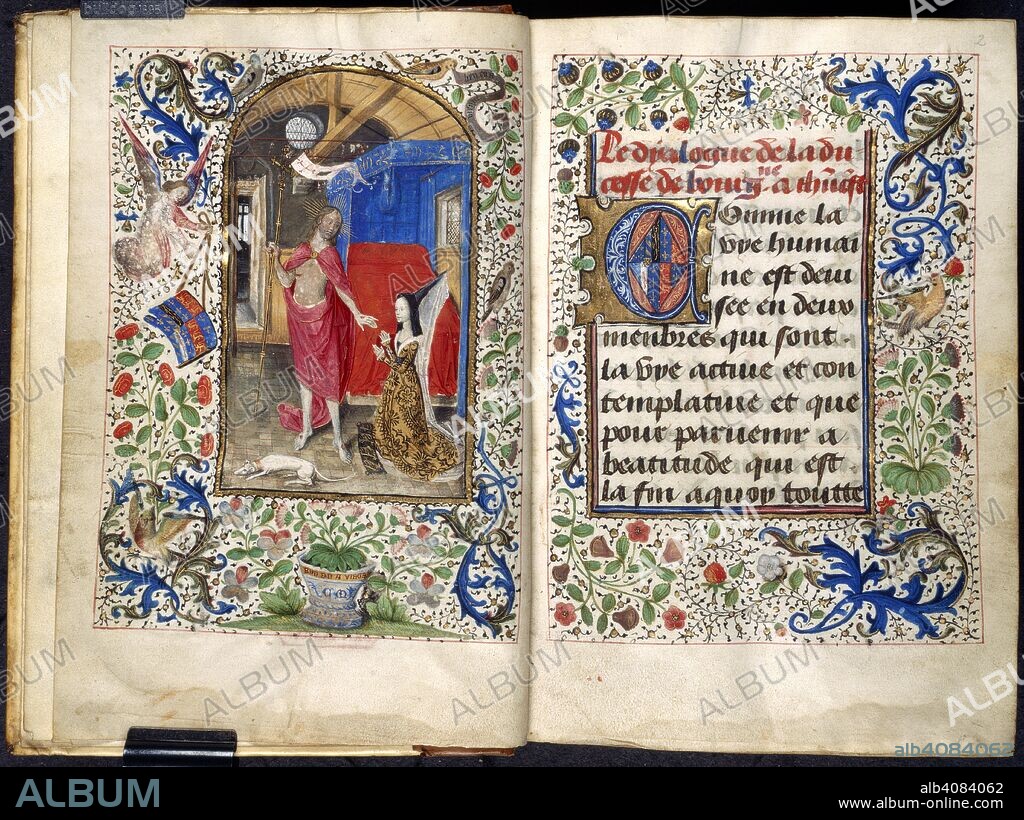 2
Le dyalogue de la du
cesse de bourgne a ihucst
Comme la
vye humai
ne est deui
see en deux
menbres qui sont
la vye actiue et con
templatiue et que
pour paruenir a
beatitude qui est
la fin a quoy toutte
ALBUM
alb4084062
ALBUM
alb4084062
www.album-online.com